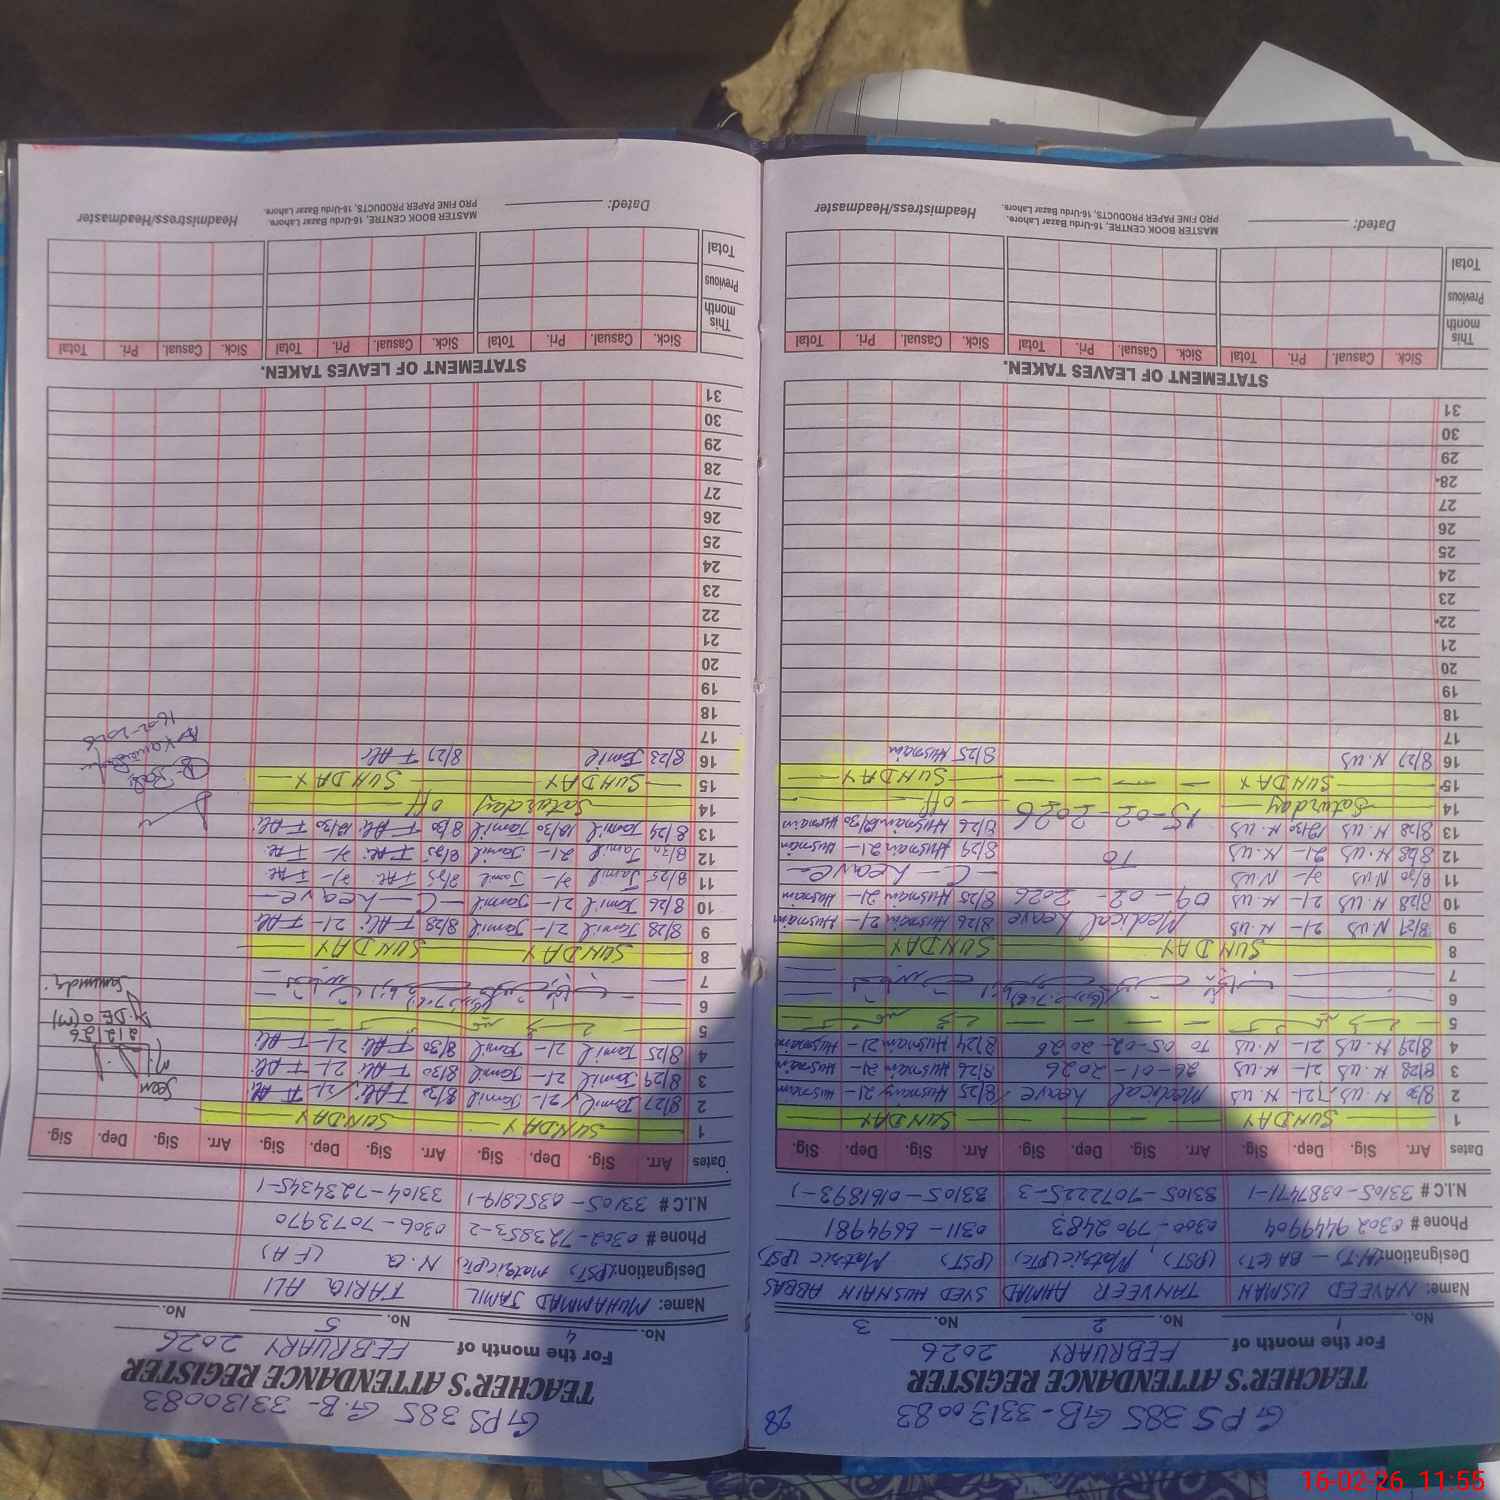 GPS 385 GB-33130083
28
TEACHER'S ATTENDANCE REGISTER
For the month of FEBRUARY 2026
No. 1 No. 2 No. 3
Name: NAVEED USMAN TANVEER AHMAD SYED HUSNAIN ABBAS
Designation: BA (CT) (PST), Matric (PTC) (PST) Matric (PST)
Phone # 0302 9449904 0300-7902483 0311-8694981
N.I.C # 33105-0387471-1 33105-7072225-3 33105-0161893-1
Dates Arr. Sig. Dep. Sig. Arr. Sig. Dep. Sig. Arr. Sig. Dep. Sig.
1 SUNDAY SUNDAY
2 8/30 N.US 21- N.US Medical Leave 8/25 Husnain 21- Husnain
3 8/28 N.US 21- N.US 26-01-2026 8/26 Husnain 21- Husnain
4 8/29 N.US 21- N.US TO 05-02-2026 8/24 Husnain 21- Husnain
5
6
7
8 SUNDAY SUNDAY
9 8/27 N.US 21- N.US Medical Leave 8/26 Husnain 21- Husnain
10 8/28 N.US 21- N.US 09-02-2026 8/25 Husnain 21- Husnain
11 8/30 N.US N.US - C - Leave -
12 8/28 N.US 21- N.US TO 8/29 Husnain 21- Husnain
13 8/28 N.US 12/30 N.US 15-02-2026 8/26 Husnain 12/30 Husnain
14 Saturday off
15 SUNDAY SUNDAY
16 8/27 N.US 8/25 Husnain
17
18
19
20
21
22
23
24
25
26
27
28
29
30
31
STATEMENT OF LEAVES TAKEN.
Sick. Casual. Pri. Total Sick. Casual. Pri. Total Sick. Casual. Pri. Total
This month
Previous
Total
Dated: MASTER BOOK CENTRE, 16-Urdu Bazar Lahore. Headmistress/Headmaster
PRO FINE PAPER PRODUCTS, 16-Urdu Bazar Lahore.
GPS 385 G.B-33130083
TEACHER'S ATTENDANCE REGISTER
For the month of FEBRUARY 2026
No. 4 No. 5 No.
Name: MUHAMMAD JAMIL TARIQ ALI
Designation: (PST) Matric (PTC) N.Q (FA)
Phone # 0302-723853-2 0306-7073970
N.I.C # 33105-0356819-1 33104-7234345-1
Dates Arr. Sig. Dep. Sig. Arr. Sig. Dep. Sig. Arr. Sig. Dep. Sig.
1 SUNDAY SUNDAY
2 8/27 Jamil 21- Jamil 8/28 T Ali 21- T Ali
3 8/29 Jamil 21- Jamil 8/30 T Ali 21- T Ali
4 8/25 Jamil 21- Jamil 8/30 T Ali 21- T Ali
5
6
7
8 SUNDAY SUNDAY
9 8/28 Jamil 21- Jamil 8/28 T Ali 21- T Ali
10 8/26 Jamil 21- Jamil - C - Leave -
11 8/25 Jamil Jamil 8/25 T Ali T Ali
12 8/30 Jamil 21- Jamil 8/25 T Ali T Ali
13 8/24 Jamil 12/30 Jamil 8/30 T Ali 12/30 T Ali
14 Saturday off
15 SUNDAY SUNDAY
16 8/23 Jamil 8/27 T Ali
17
18
19
20
21
22
23
24
25
26
27
28
29
30
31
Seen
2/2/26
DDEO (M)
Samundri
16-02-2026
STATEMENT OF LEAVES TAKEN.
Sick. Casual. Pri. Total Sick. Casual. Pri. Total Sick. Casual. Pri. Total
This month
Previous
Total
Dated: MASTER BOOK CENTRE, 16-Urdu Bazar Lahore. Headmistress/Headmaster
PRO FINE PAPER PRODUCTS, 16-Urdu Bazar Lahore.
16-02-26 11:55